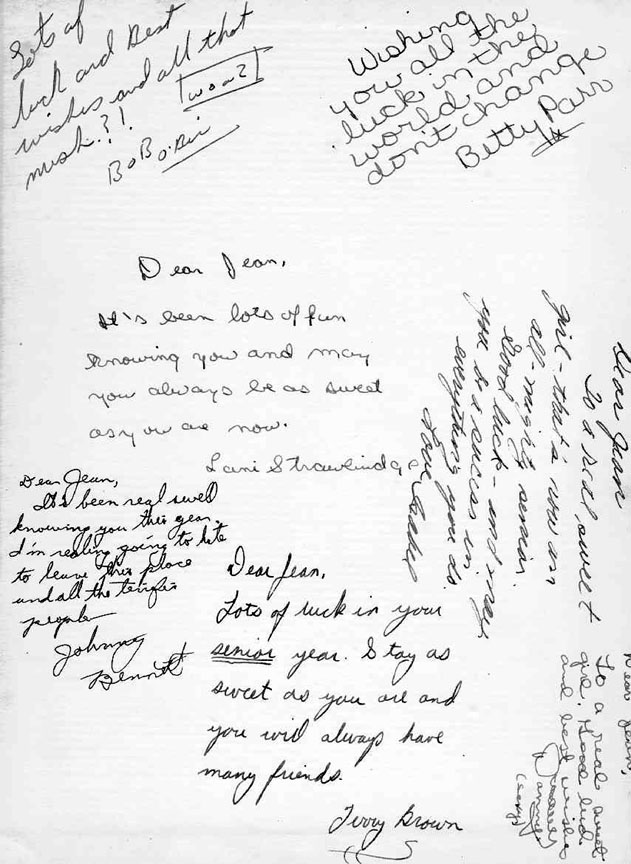 Lots of
luck and Best
wishes and all that
mush.?!
Wishing
you all the
luck in the
world and
don't change
Betty Parr
Dear Jean,
It's been lots of fun
knowing you and may
you always be as sweet
as you are now.
Lani
Dear Jean,
It's been real swell
knowing you this year.
I'm really going to hate
to leave this place
and all the terrific
people
Johnny
Bennett
Dear Jean,
Lots of luck in your
senior year. Stay as
sweet as you are and
you will always have
many friends.
Terry Brown
Dear Jean
To a real sweet
girl - that's now an
all mighty senior
Good luck - and may
you be a success in
everything you do.
Love
Dear Jean,
To a real sweet
girl. Good luck
and best wishes